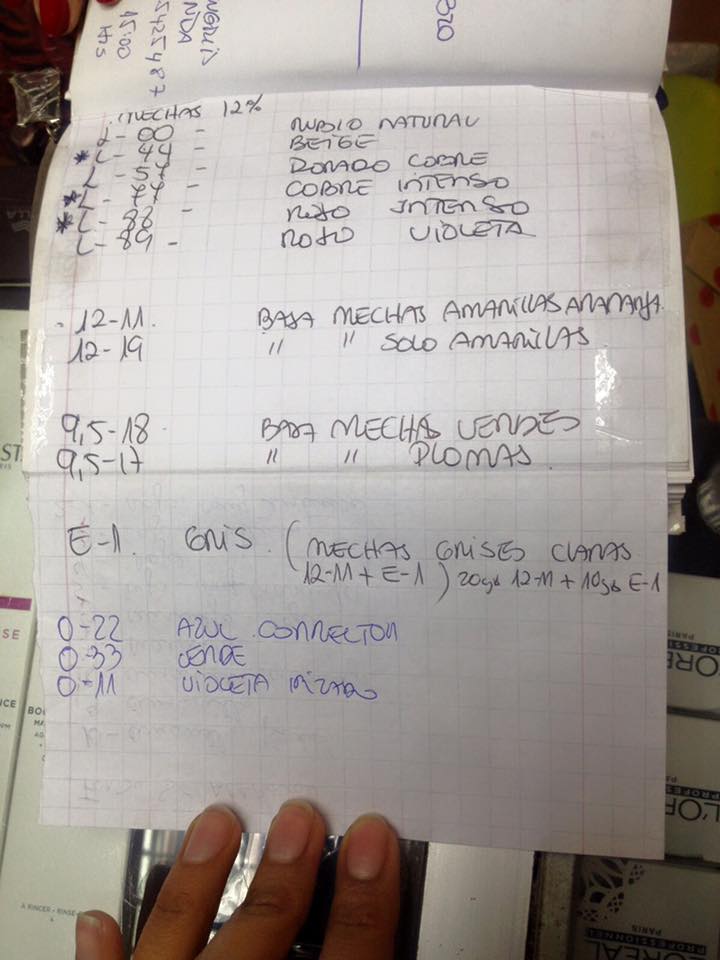 5425487
15:00
Hrs
MECHAS 12%
L-00 - RUBIO NATURAL
* L-44 - BEIGE
L-57 - DORADO COBRE
* L-77 - COBRE INTENSO
* L-88 - ROJO INTENSO
L-89 - ROJO VIOLETA
- 12-11. BAJA MECHAS AMARILLAS ANARANJA.
12-19 " " SOLO AMARILLAS.
9,5-18 BAJA MECHAS VERDES
9,5-17 " " PLOMAS.
E-1. GRIS. (MECHAS GRISES CLARAS
12-11 + E-1) 20grs 12-11 + 10grs E-1
0-22 AZUL CORRECTOR
0-33 VERDE
0-11 VIOLETA IRIZADO
A RINCER - RINSE
L'ORÉAL
PROFESSIONNEL
PARIS